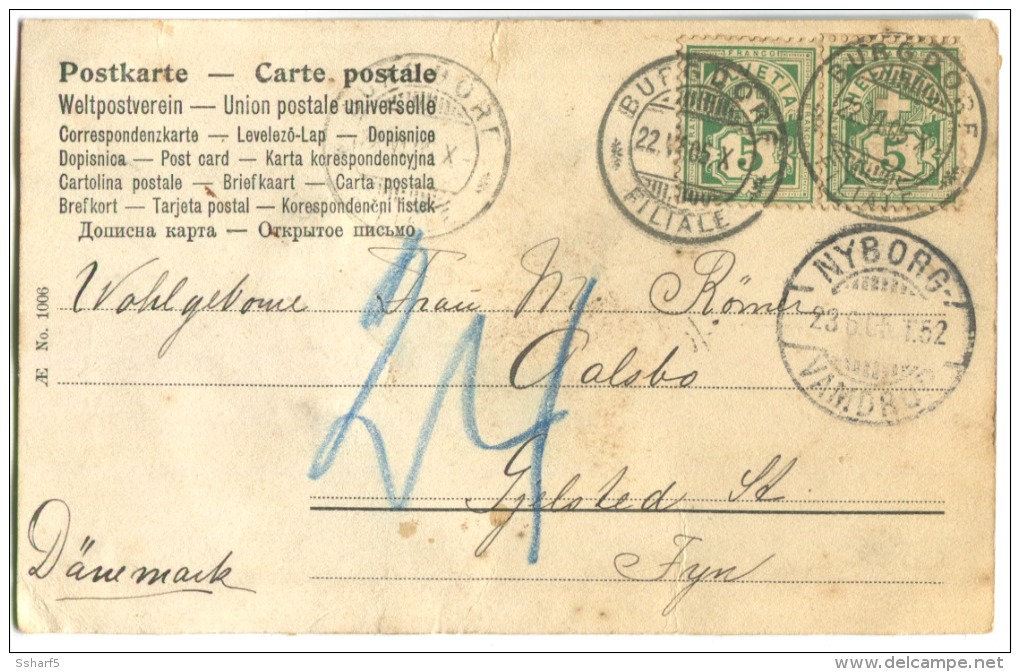 Postkarte — Carte postale
Weltpostverein — Union postale universelle
Correspondenzkarte — Levelező-Lap — Dopisnice
Dopisnica — Post card — Karta korespondencyjna
Cartolina postale — Briefkaart — Carta postala
Brefkort — Tarjeta postal — Korespondenční lístek
Дописна карта — Открытое письмо
FRANCO
HELVETIA
5
FRANCO
HELVETIA
5
BURGDORF
22.VI.05.X
FILIALE
BURGDORF
FILIALE
NYBORG
23.6.05. 1.52
VAMDRUP
Æ No. 1006
Wohlgeborne Frau M Römer
Aalsbo
24
Gjelsted St
Fyn
Dänemark
Ssharf5
www.delcampe.net